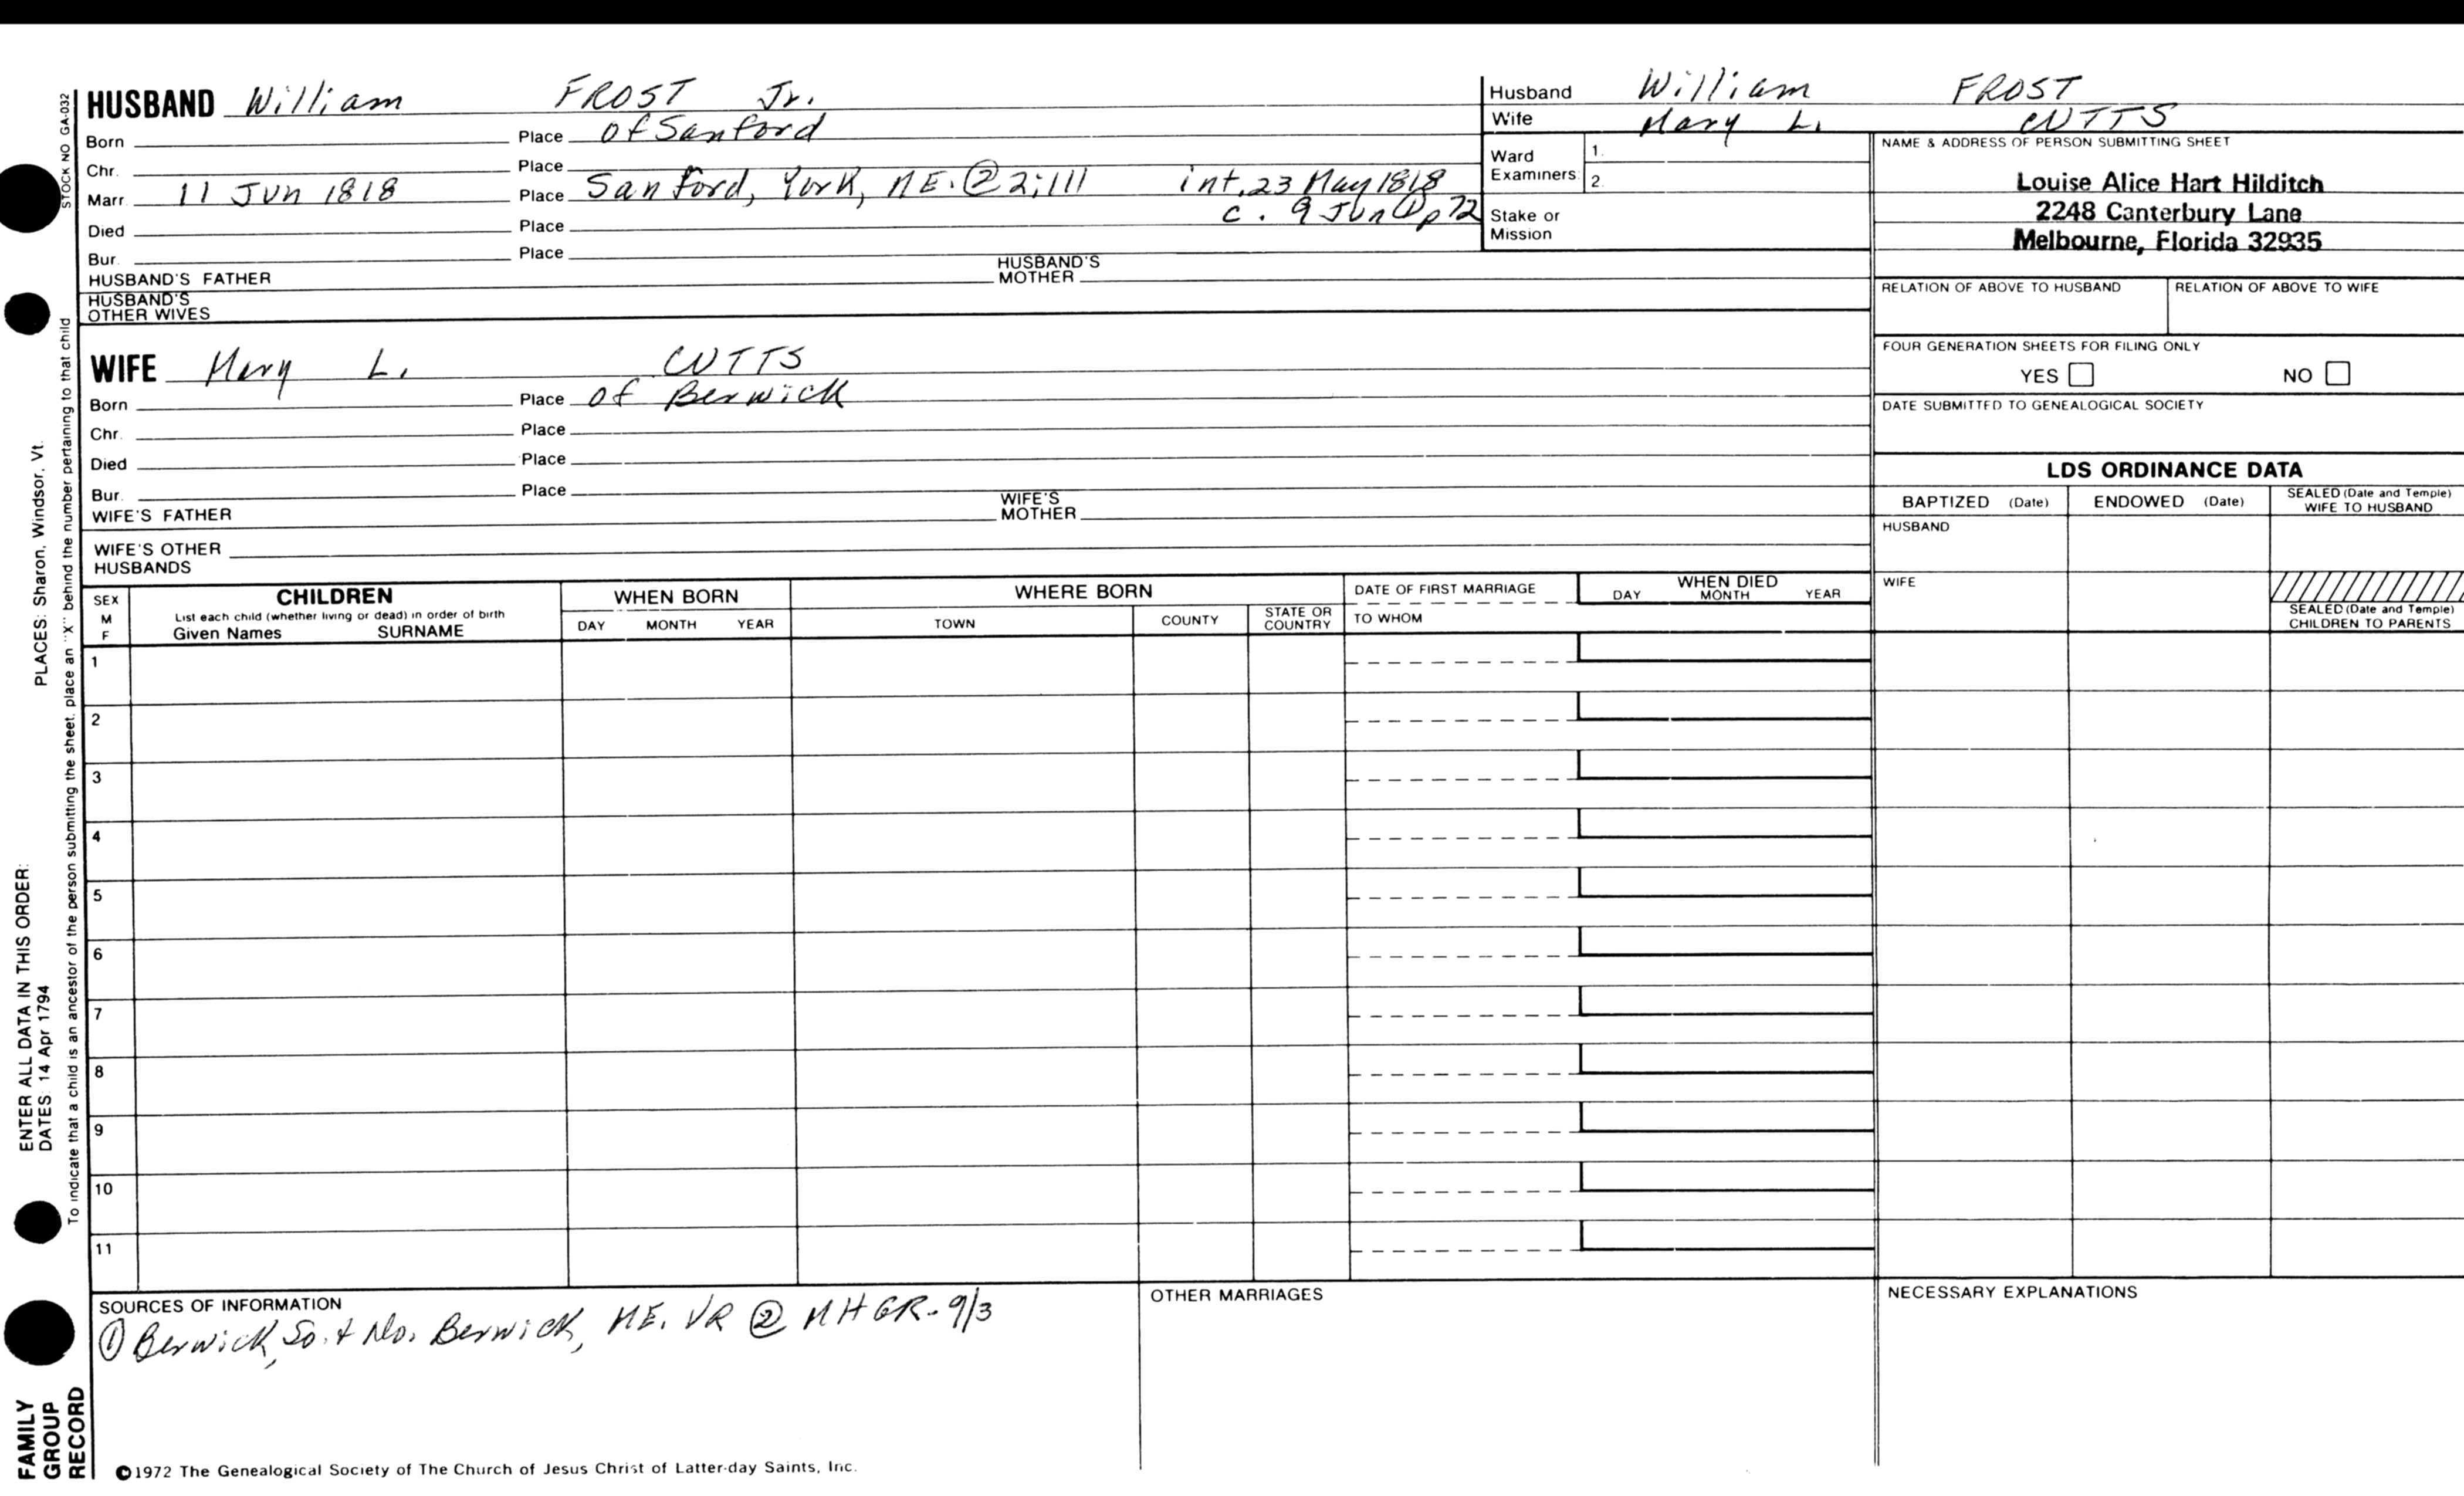 HUSBAND William FROST Jr.
Born Place of Sanford
Chr. Place
Marr. 11 Jun 1818 Place Sanford, York, ME. ② 2:111 int. 23 May 1818
c. 9 Jun ① p 72
Died Place
Bur. Place
HUSBAND'S FATHER HUSBAND'S MOTHER
HUSBAND'S OTHER WIVES
WIFE Mary L. CUTTS
Born Place of Berwick
Chr. Place
Died Place
Bur. Place
WIFE'S FATHER WIFE'S MOTHER
WIFE'S OTHER HUSBANDS
Husband William FROST
Wife Mary L. CUTTS
Ward Examiners: 1.
2.
Stake or Mission
NAME & ADDRESS OF PERSON SUBMITTING SHEET
Louise Alice Hart Hilditch
2248 Canterbury Lane
Melbourne, Florida 32935
RELATION OF ABOVE TO HUSBAND RELATION OF ABOVE TO WIFE
FOUR GENERATION SHEETS FOR FILING ONLY
YES NO
DATE SUBMITTED TO GENEALOGICAL SOCIETY
LDS ORDINANCE DATA
BAPTIZED (Date) ENDOWED (Date) SEALED (Date and Temple) WIFE TO HUSBAND
HUSBAND
WIFE
SEALED (Date and Temple) CHILDREN TO PARENTS
SEX M F
CHILDREN
List each child (whether living or dead) in order of birth
Given Names SURNAME
WHEN BORN
DAY MONTH YEAR
WHERE BORN
TOWN COUNTY STATE OR COUNTRY
DATE OF FIRST MARRIAGE
TO WHOM
WHEN DIED
DAY MONTH YEAR
1
2
3
4
5
6
7
8
9
10
11
SOURCES OF INFORMATION
① Berwick, So. & No. Berwick, ME. VR ② MHGR-9/3
OTHER MARRIAGES
NECESSARY EXPLANATIONS
©1972 The Genealogical Society of The Church of Jesus Christ of Latter-day Saints, Inc.
STOCK NO GA-032
To indicate that a child is an ancestor of the person submitting the sheet, place an "X" behind the number pertaining to that child
ENTER ALL DATA IN THIS ORDER:
DATES 14 Apr 1794 PLACES: Sharon, Windsor, Vt.
FAMILY
GROUP
RECORD